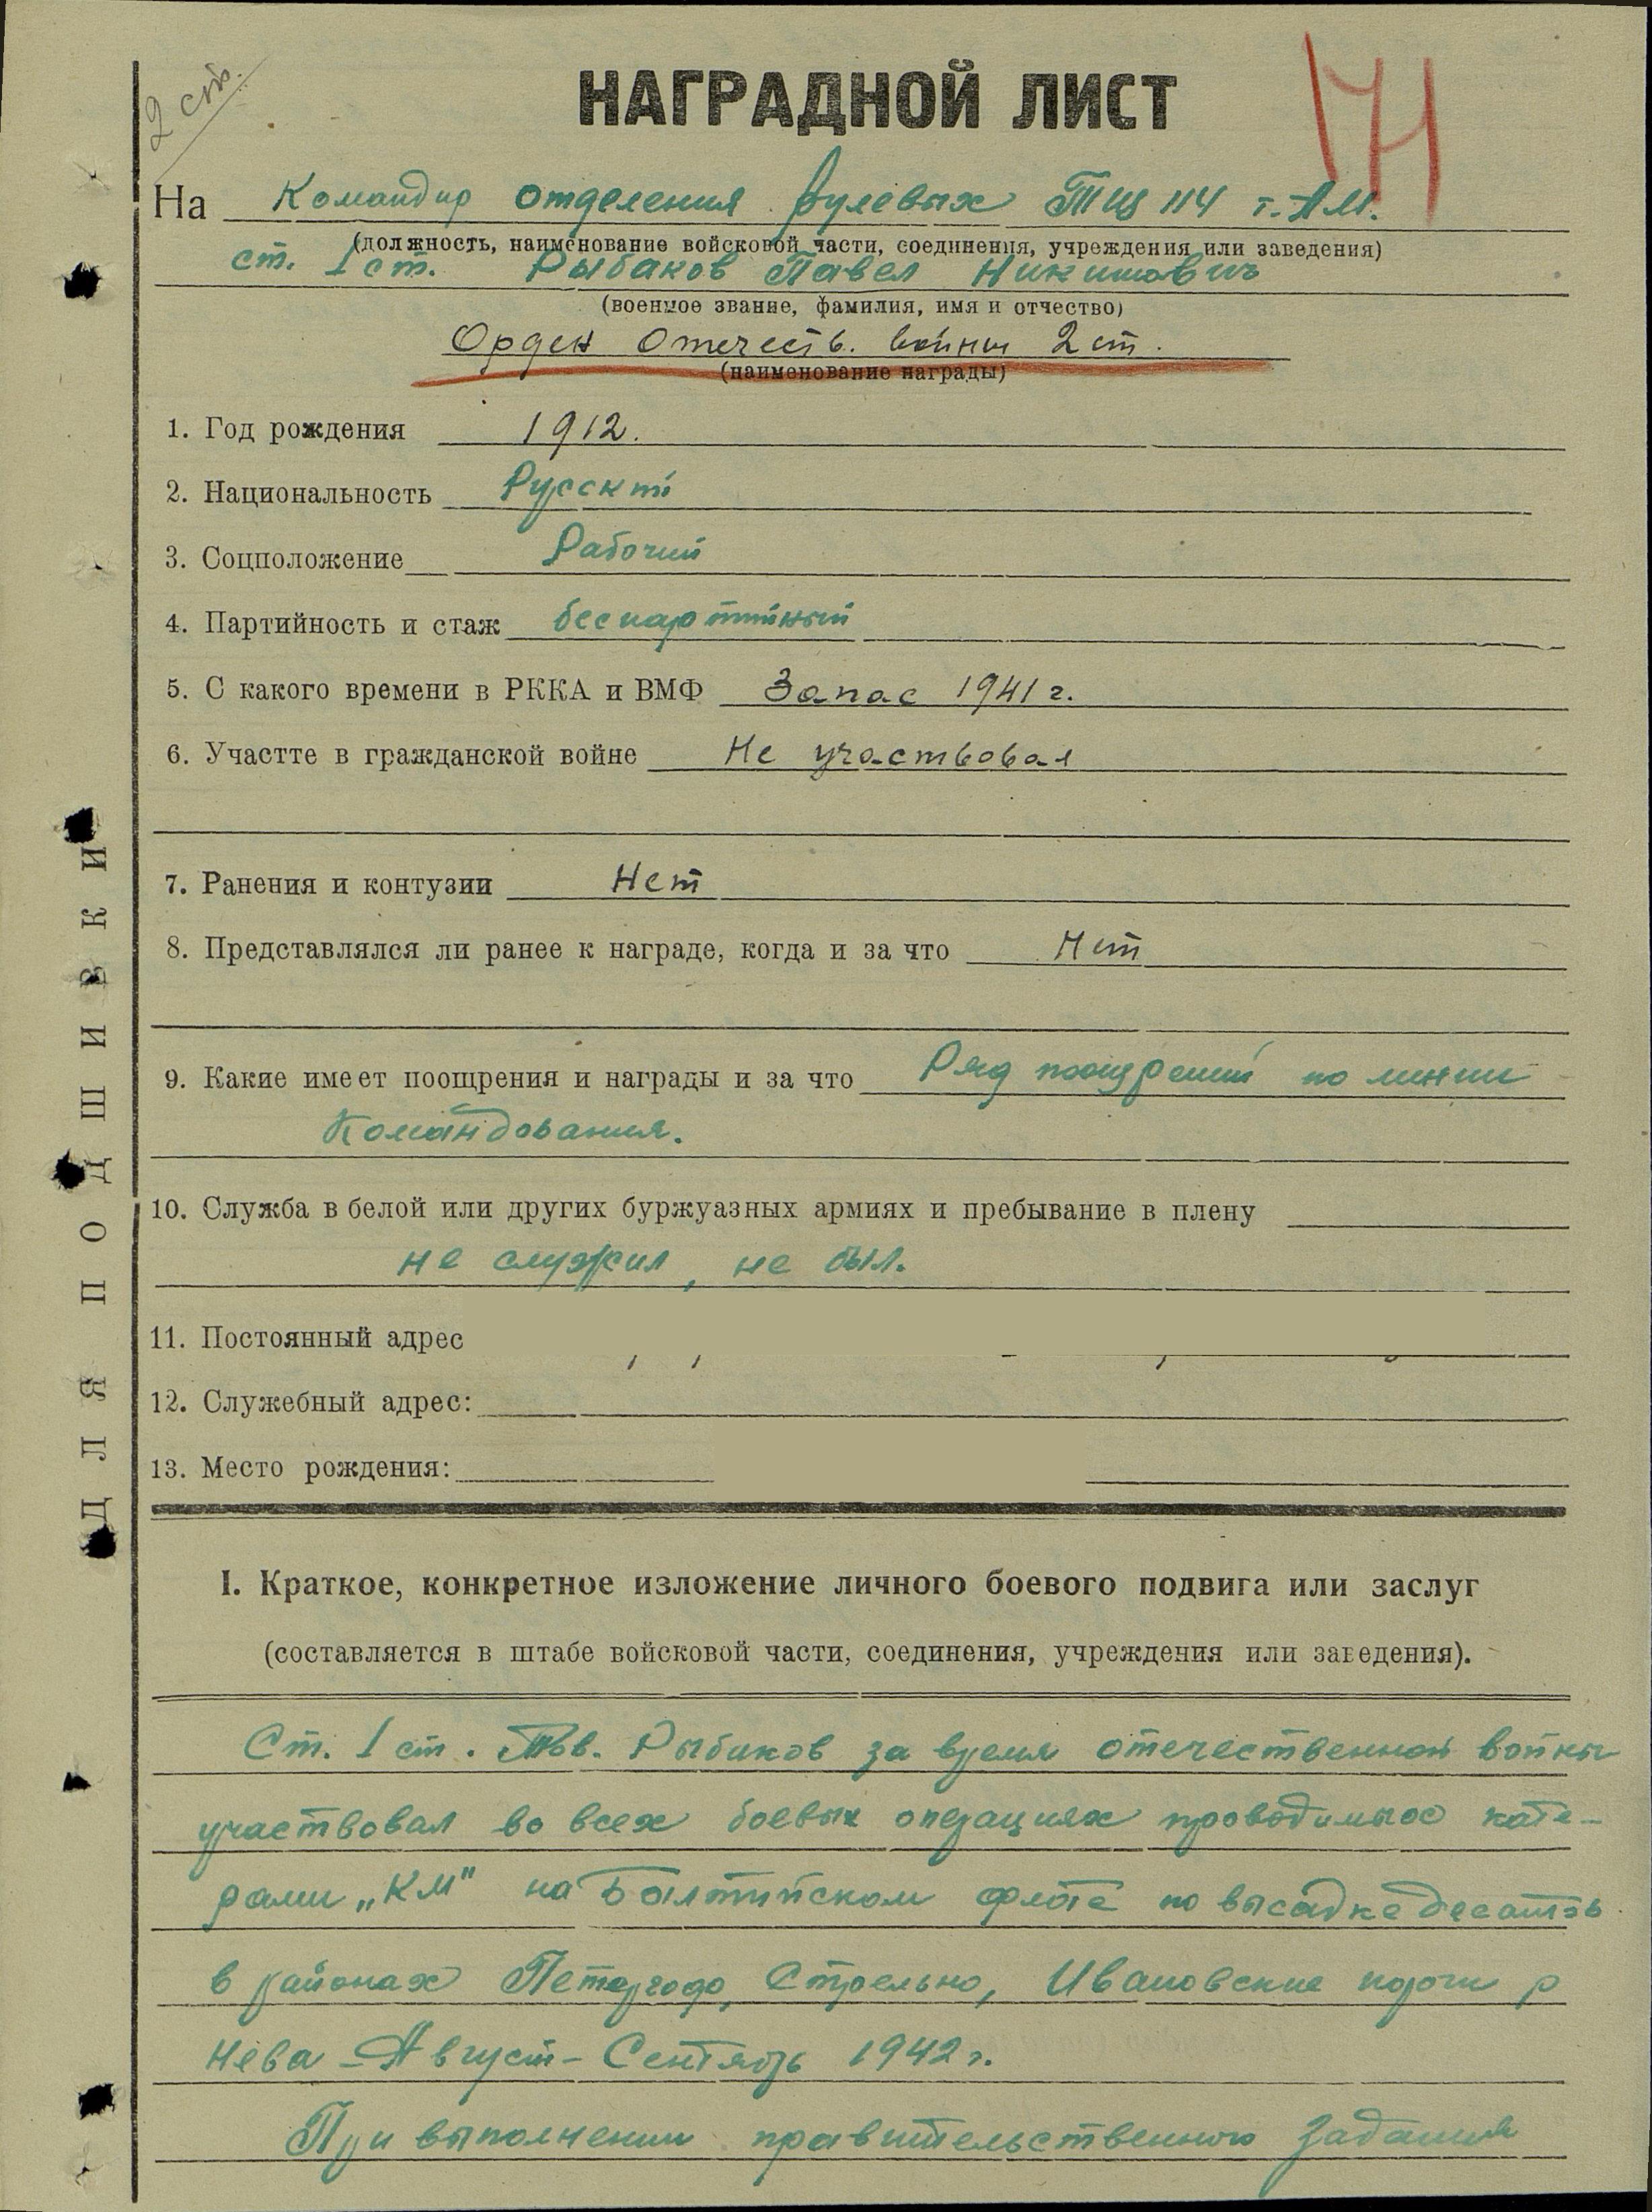 2 ст.
НАГРАДНОЙ ЛИСТ
На Командир отделения рулевых ТЩ 114 т. АМ.
(должность, наименование войсковой части, соединения, учреждения или заведения)
ст. 1 ст. Рыбаков Павел Никитович
(военное звание, фамилия, имя и отчество)
Орден Отечеств. войны 2 ст.
(наименование награды)
1. Год рождения 1912.
2. Национальность Русский
3. Соцположение Рабочий
4. Партийность и стаж беспартийный
5. С какого времени в РККА и ВМФ Запас 1941 г.
6. Участте в гражданской войне Не участвовал
7. Ранения и контузии Нет
8. Представлялся ли ранее к награде, когда и за что Нет
9. Какие имеет поощрения и награды и за что Ряд поощрений по линии
Командования.
10. Служба в белой или других буржуазных армиях и пребывание в плену
не служил, не был.
11. Постоянный адрес
12. Служебный адрес:
13. Место рождения:
I. Краткое, конкретное изложение личного боевого подвига или заслуг
(составляется в штабе войсковой части, соединения, учреждения или заведения).
Ст. 1 ст. Тов. Рыбаков за время отечественной войны
участвовал во всех боевых операциях проводимых кате-
рами „КМ" на Балтийском флоте по высадке десантов
в районах Петергофа, Стрельно, Ивановские пороги р
Нева – Август – Сентябрь 1942 г.
При выполнении правительственного задания
ДЛЯ ПОДШИВКИ